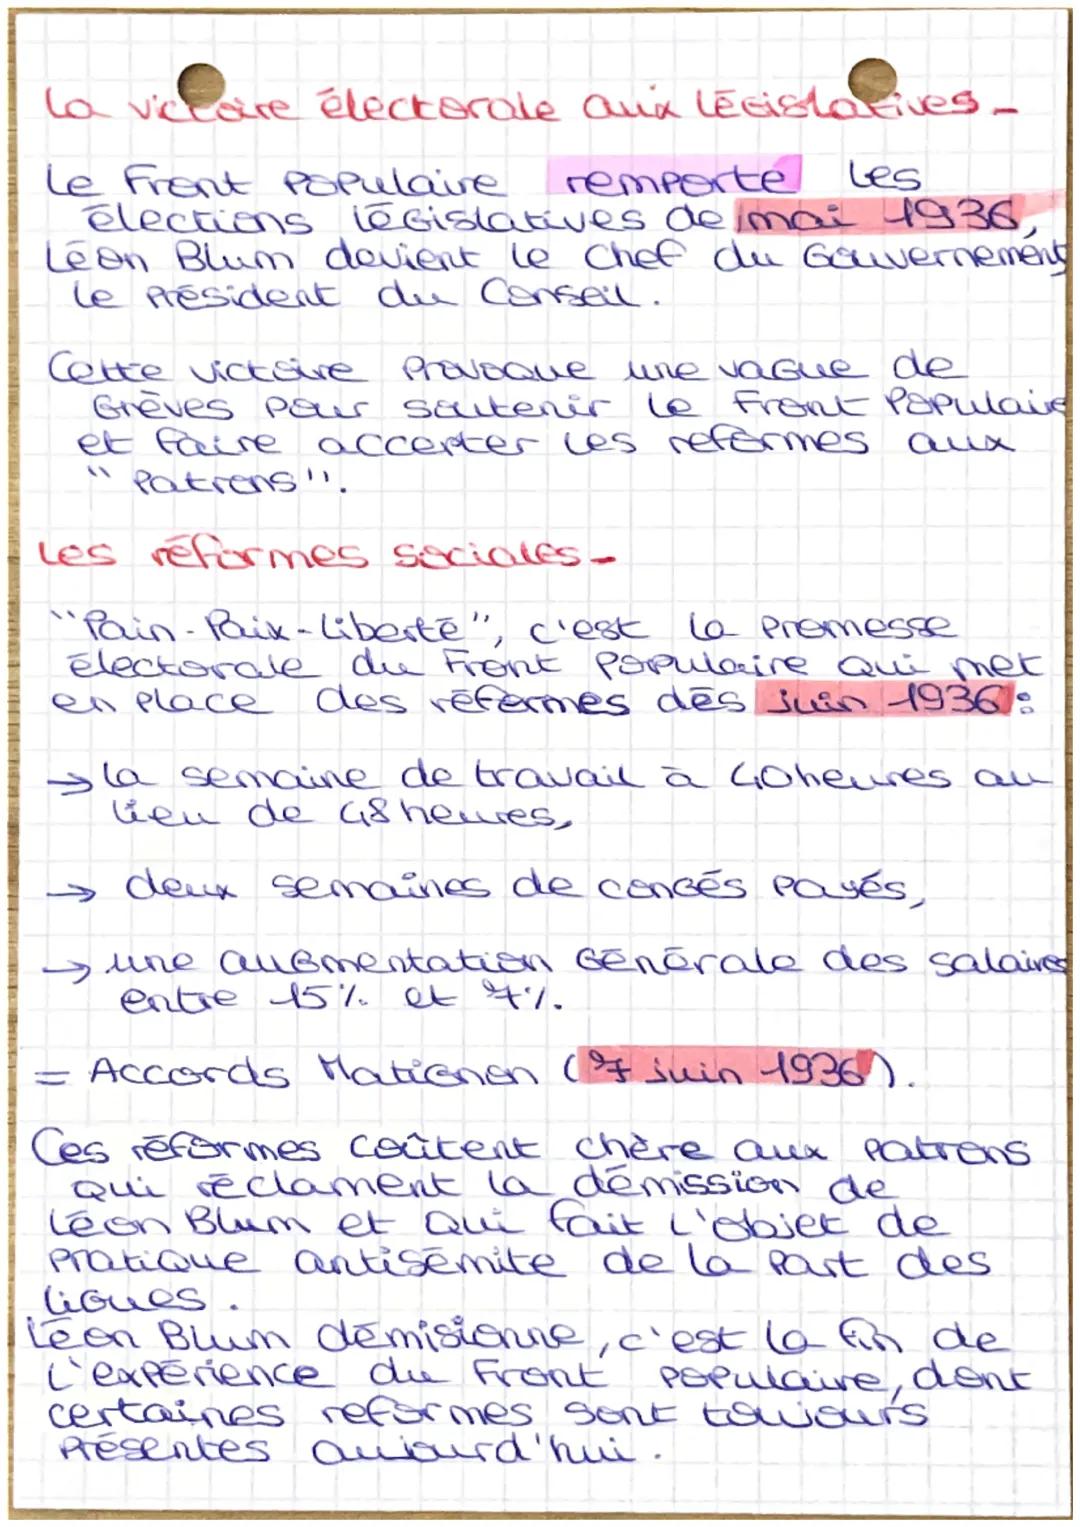 La victoire électorale aux législatives -
Le Front Populaire remporte les
élections législatives de mai 1936,
Léon Blum devient le Chef du Gouvernement
le Président du Conseil.
Cette victoire provoque une vague de
Grèves pour soutenir le Front Populaire
et faire accepter les reformes aux
"Patrons".
Les réformes sociales -
"Pain-Paix-Liberté", c'est la promesse
électorale du Front Populaire qui met
en place des réformes dès juin 1936 :
→ la semaine de travail à 40 heures au
lieu de 48 heures,
→ deux semaines de congés payés,
→ une augmentation Générale des salaires
entre 15% et 7%.
= Accords Matignon (7 juin 1936).
Ces réformes coûtent chère aux patrons
qui réclament la démission de
Léon Blum et qui fait l'objet de
pratique antisémite de la part des
ligues.
Léon Blum démisionne, c'est la fin de
l'expérience du Front Populaire, dont
certaines reformes sont toujours
présentes aujourd'hui.